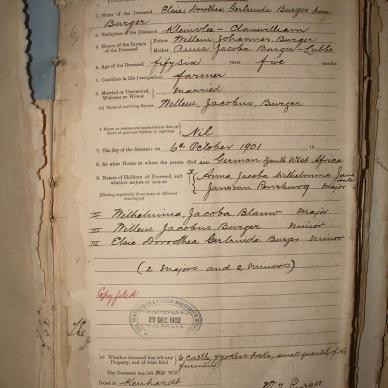 1. Name of the Deceased Elsie Dorothea Gertruida Burger born
Burger
2. Birthplace of the Deceased Kleinvlei - Clanwilliam
3. Names of the Parents of the Deceased Father Willem Johannes Burger
Mother Anna Jacoba Burger - Lubbe
4. Age of the Deceased fifty six years five months
5. Condition in life (occupation) farmer
6. Married or Unmarried, Widower or Widow Married
(a) Name of surviving Spouse Willem, Jacobus, Burger
Nil
7. The day of the decease: on 6th October 1901
8. At what House or where the person died in German South West Africa
9. Names of Children of Deceased, and whether majors or minors I Anna Jacoba Wilhelmina
Jans van Major
II Wilhelmina, Jacoba Blauw Major
III Willem Jacobus Burger Minor
IV Elsie Dorothea Gertruida Burger Minor
(2 Majors and 2 Minors)
Copy filed
29 DEC 1902
The
10 Whether deceased has left any Property, and of what kind 6 cattle, small quantity of
furniture
The Deceased has left No Will
Dated at Kenhardt
Burger